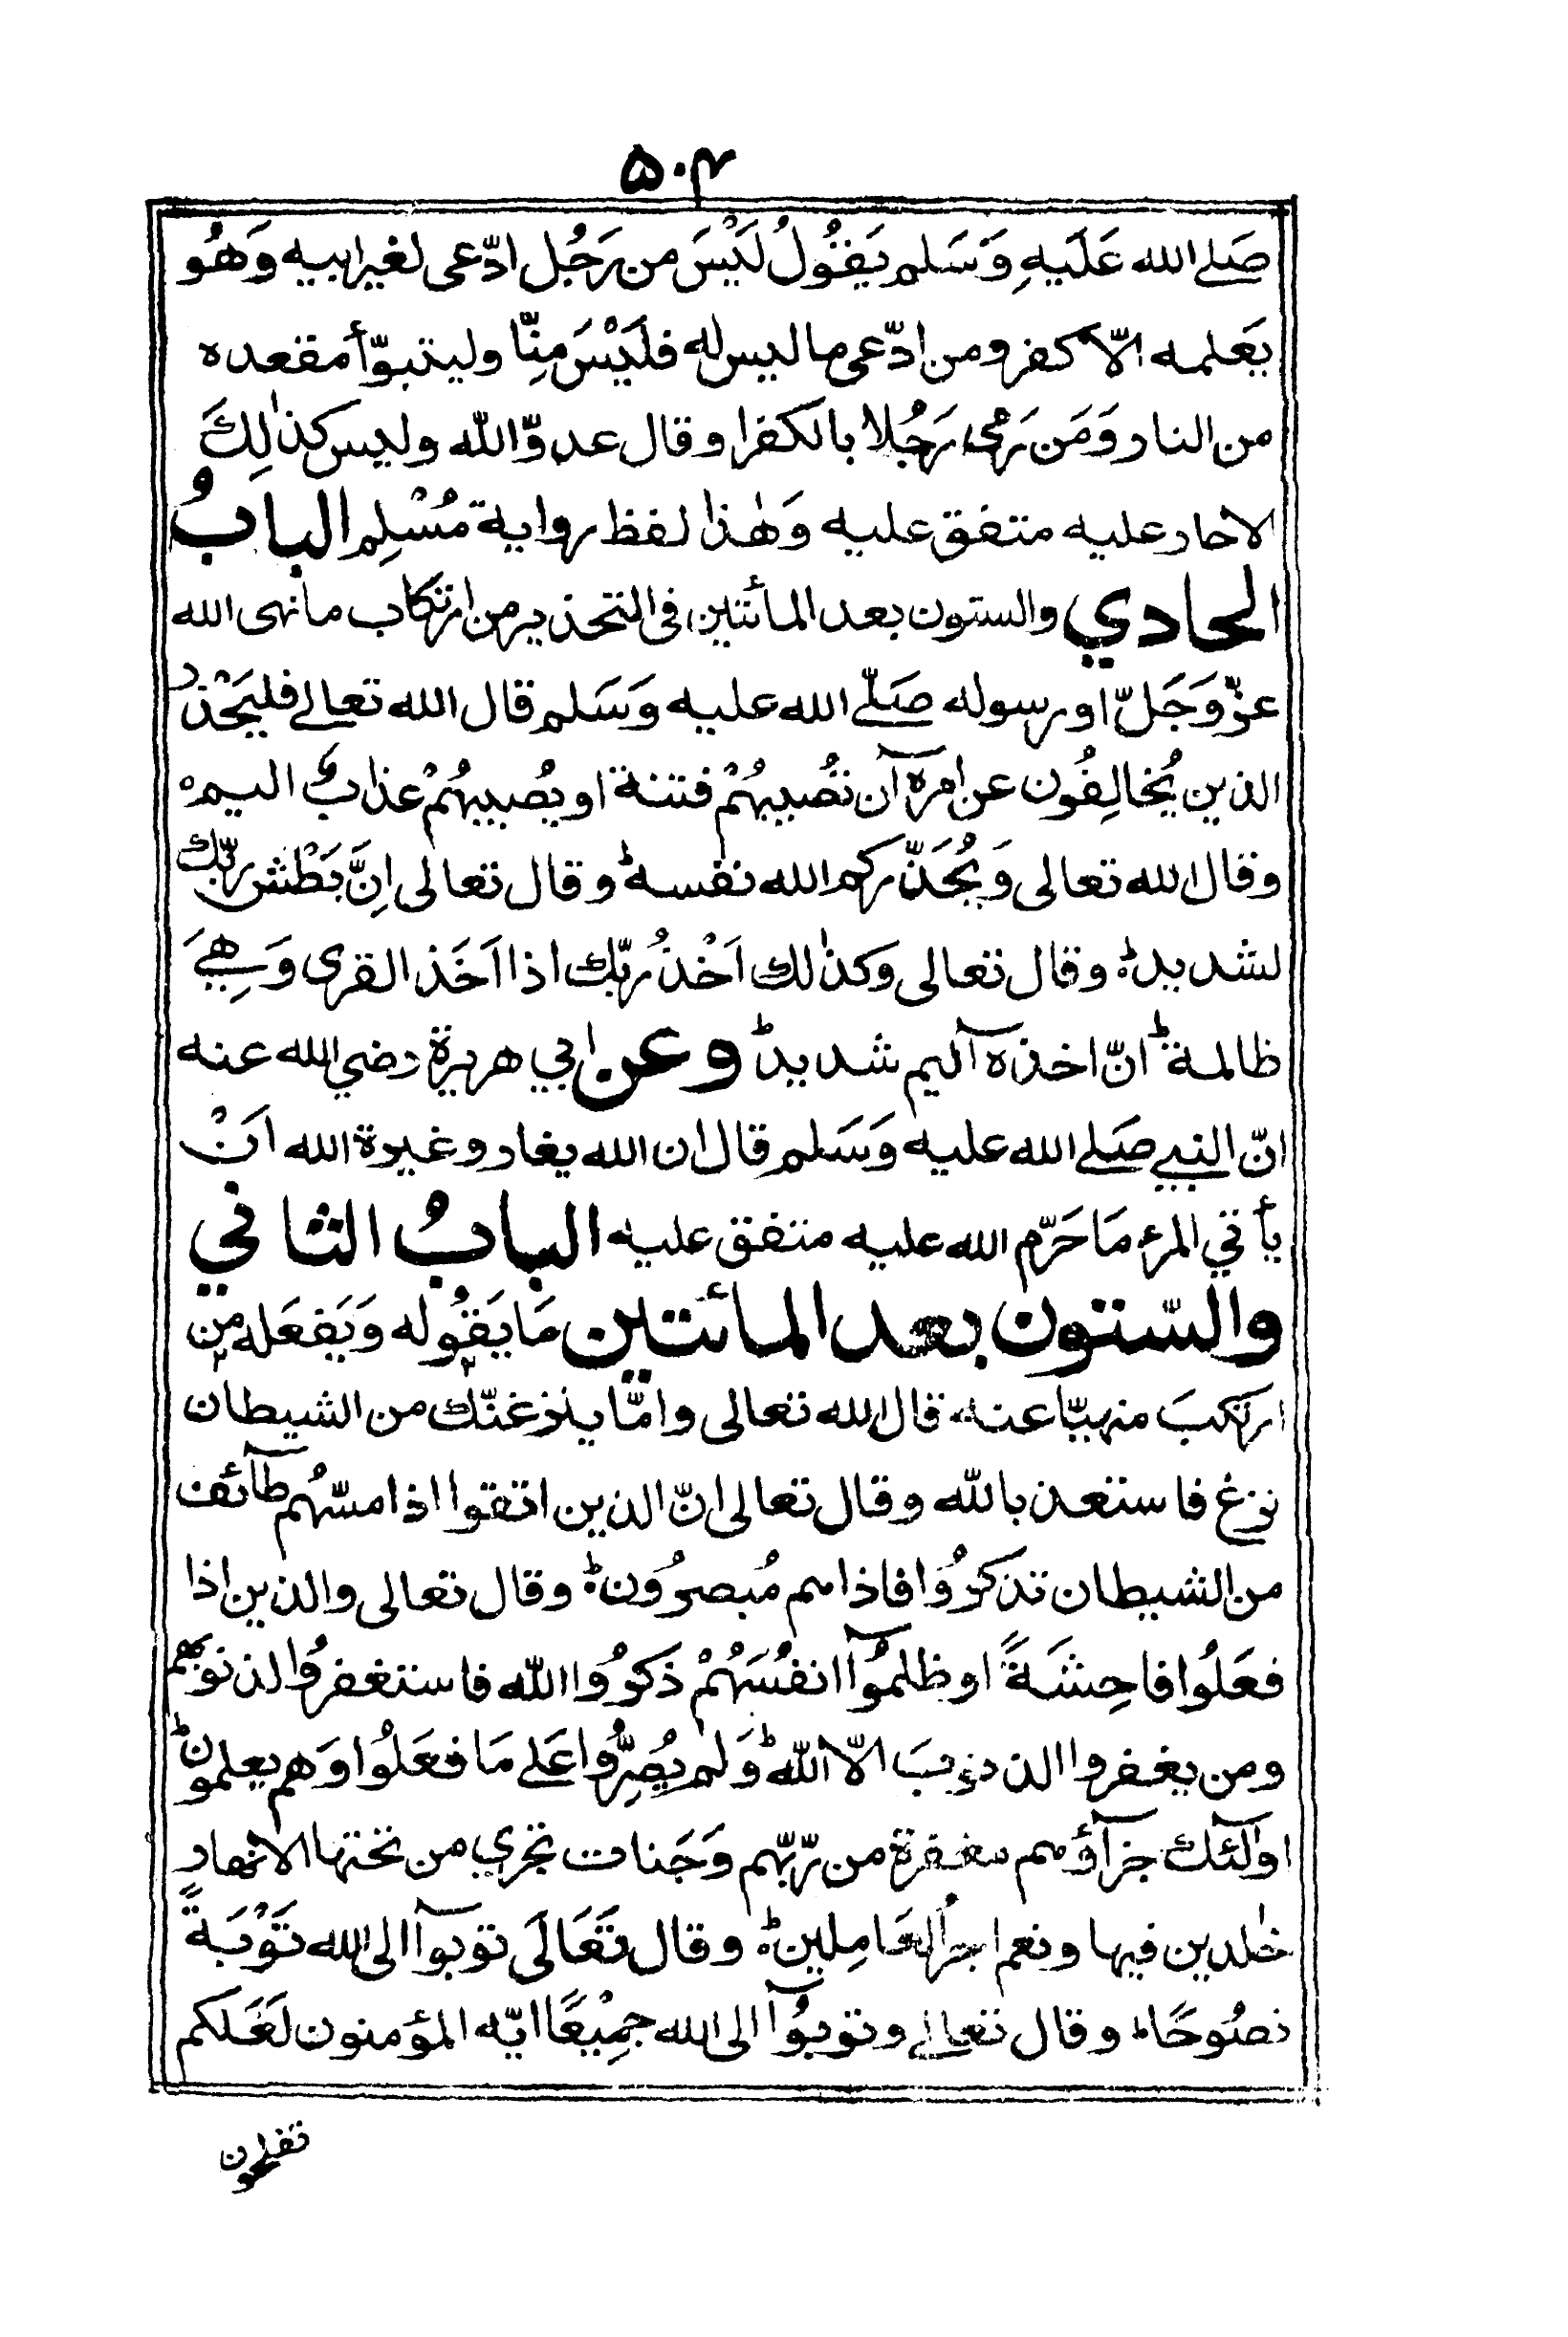 ۵۰۴
صَلے الله عَلَيهِ وَسَلم يَقُولُ لَيْسَ من رَجُل ادّعى لغير ابيه وَهُو
يَعلمه الّا كفر ومن ادّعى ما ليس له فلَيْسَ مِنّا وليتبوّأ مقعده
من النار وَمَن رَمٰى رَجُلا بالكفر او قال عدوّ الله وليس كذٰلِكَ
الا حار عليه متفق عليه وَهٰذا لفظ رواية مُسْلِم البابُ
الحادي والستون بعد المأتين فى التحذير من ارتكاب ما نهى الله
عزّ وَجَلّ او رسوله صَلّے الله عليه وَسَلم قال الله تعالے فليَحْذر
الذين يُخالِفُون عن امره آن تُصيبهُمْ فتنة او يُصيبهُمْ عذابٌ اليمه
وقال الله تعالى وَيُحَذّركم الله نفسهط وقال تعالى اِنَّ بَطْش ربّك
لشديدط وقال تعالى وكذٰلك اَخْذُ ربّك اذا اَخَذ القرى وَهِيَ
ظالمةط انّ اخذه آليم شديدط وعن ابي هريرة رضي الله عنه
انّ النبي صَلے الله عليه وَسَلم قال ان الله يغار وغيرة الله اَنْ
يأتي المرء مَا حَرّم الله عليه متفق عليه البابُ الثاني
والسّتون بعد المائتين مَا يَقُوله وَيَفعَله من
ارتكبَ منهيّا عنه قال الله تعالى وامّا ينزغنّك من الشيطان
نزغ فاستعذ بالله وقال تعالى انّ الذين اتقوا اذا مسّهُم طآئف
من الشيطان تذكرُوا فاذا هم مُبصرُونط وقال تعالى والذين اذا
فعَلُوا فاحِشَةً او ظلمُوآ انفُسَهُمْ ذكرُوا الله فاستغفرُوا لذنوبهم
ومن يغفروا الذنوبَ الّا اللهط وَلم يُصِرُّوا عَلے مَا فعَلُوا وَهم يعلمونط
اولٰٓئك جزآؤهم مغفرة من رّبّهم وَجَنات تجري من تحتها الانهار
خٰلدين فيها ونعم اجرُ العَامِلينط وقال تَعَالَى توبوآ الى الله تَوْبَةً
نصُوحًاط وقال تعالے وتوبُوآ الى الله جمِيْعًا ايّه المؤمنون لَعَلكم
تفلحون